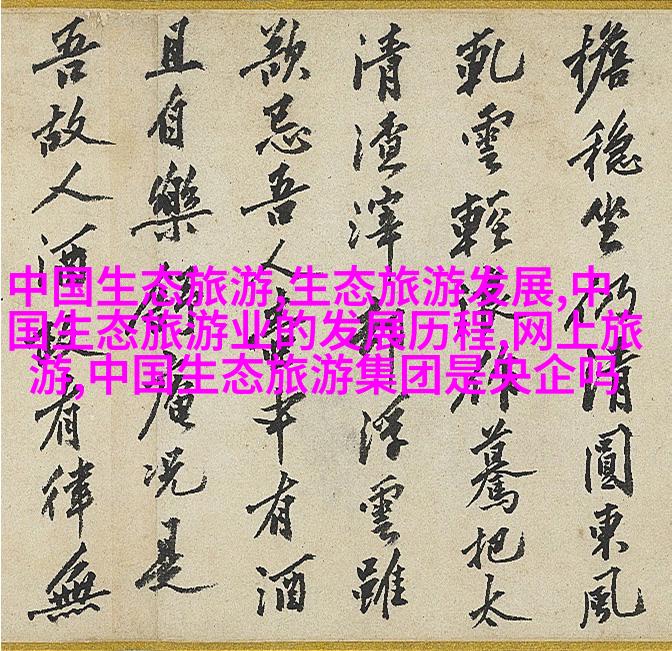 中国生态旅游,生态旅游发展,中
国生态旅游业的发展历程,网上旅
游,中国生态旅游集团是央企吗
檐穩坐清圓東風
雲輕作驀把太
清渣滓浮雲雖
忌吾人中有酒
且自樂庵况是
吾故人酒有律無